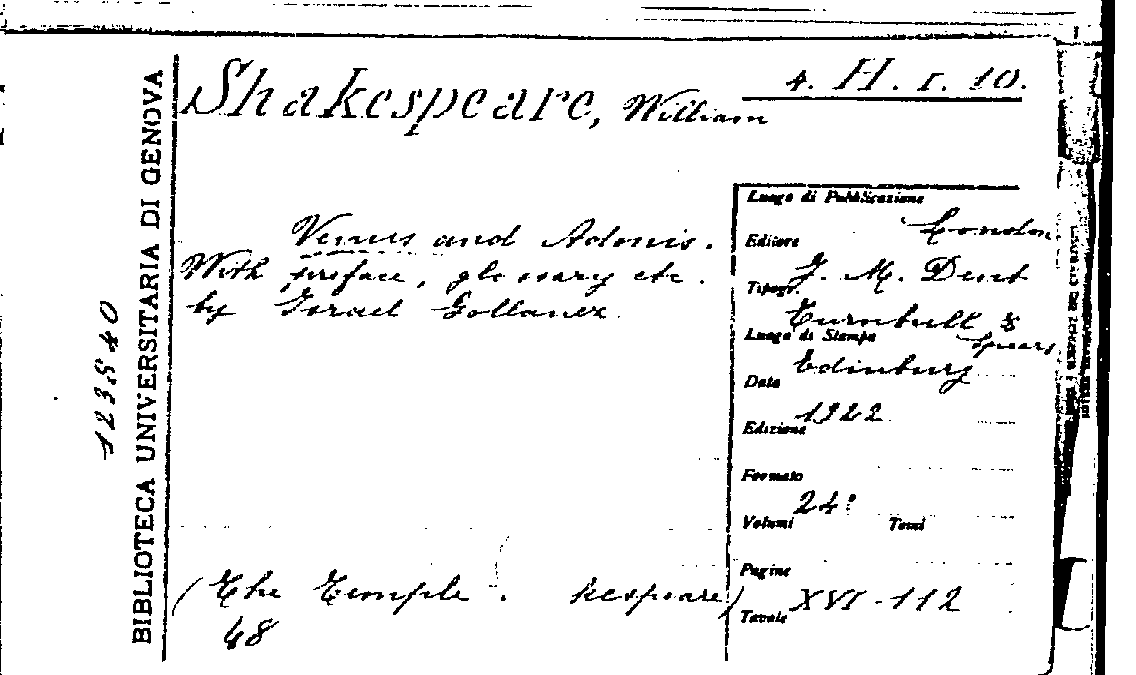 4. H. I. 10.
Shakespeare, William
Venus and Adonis.
With preface, glossary etc.
by Israel Gollancz
(The Temple . kespeare)
48
Luogo di Pubblicazione
London
Editore
J. M. Dent
Tipogr.
Turnbull &
Spears
Luogo di Stampa
Edinburg
Data
1922
Edizione
Formato
24º
Volumi Tomi
Pagine
XVI-112
Tavole
BIBLIOTECA UNIVERSITARIA DI GENOVA
123840